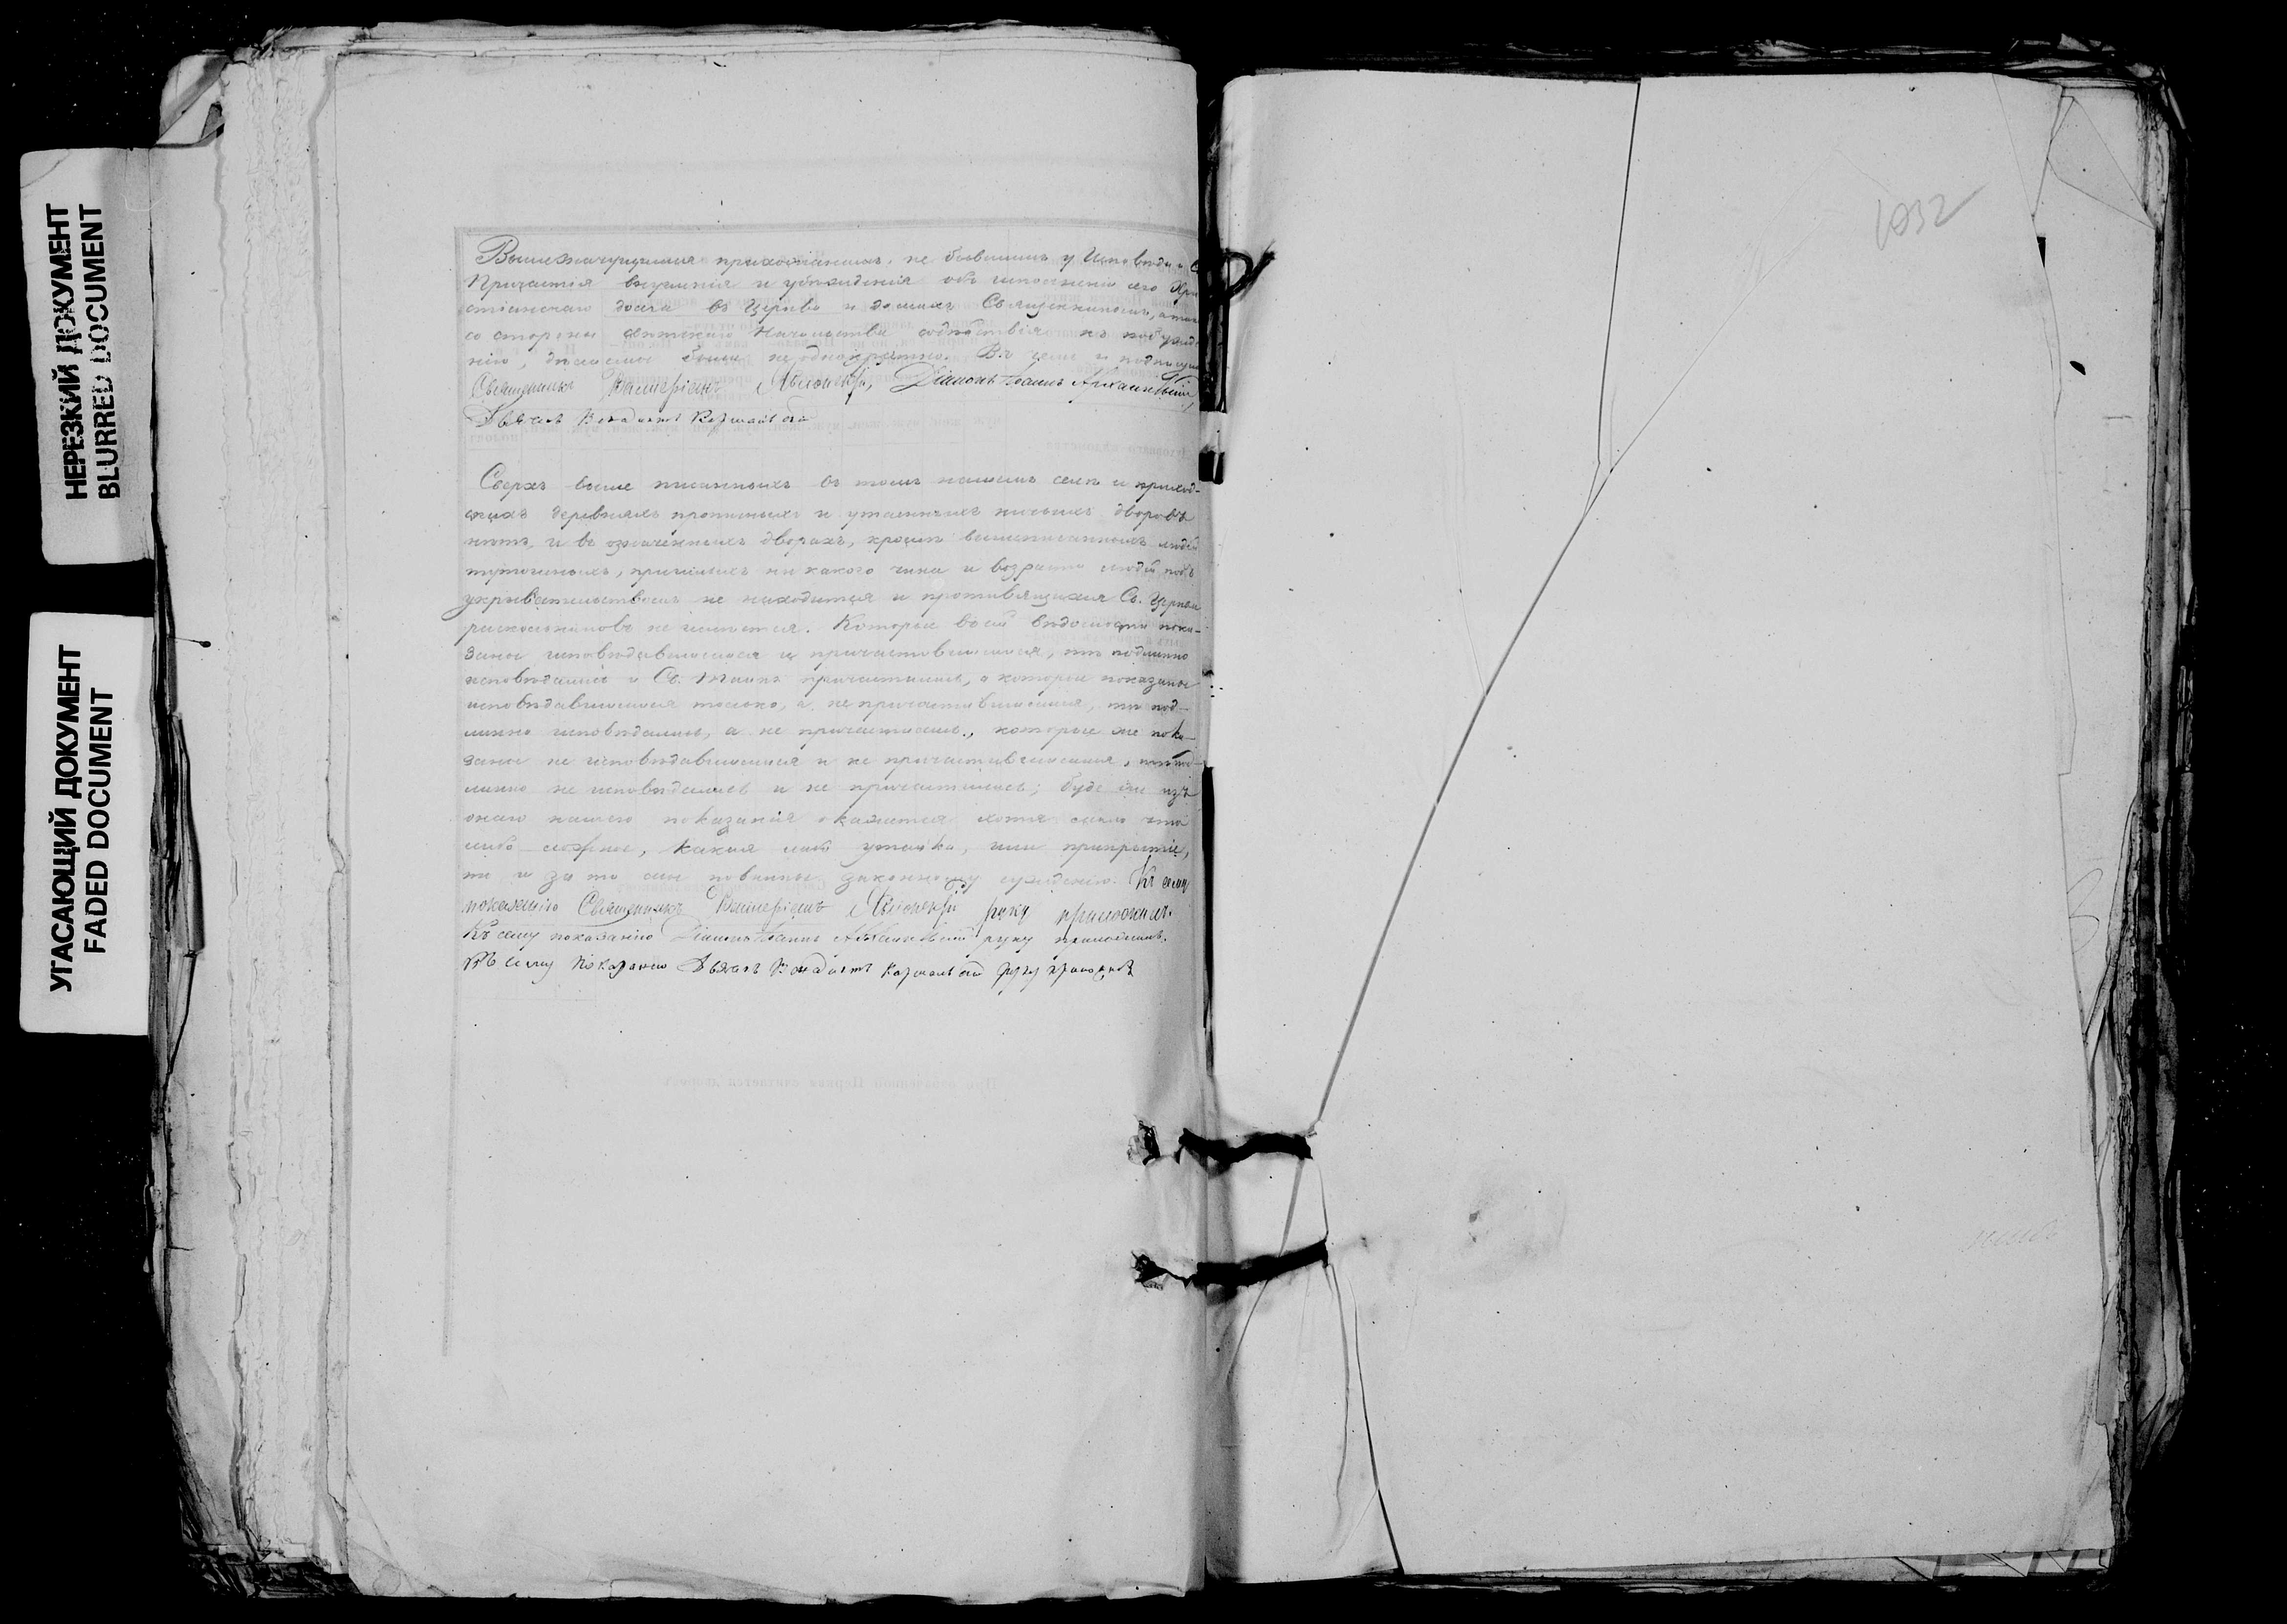 НЕРЕЗКИЙ ДОКУМЕНТ
BLURRED DOCUMENT
УГАСАЮЩИЙ ДОКУМЕНТ
FADED DOCUMENT
1032
прихожанамъ, не бывшимъ у Исповѣди и С
Причастія внушенія и убѣжденія объ исполненіи сего Хри
стіанскаго долга въ Церкви и домахъ Священникомъ, а так
со стороны Начальства содѣйствія къ побужде
нію, были неоднократно. Въ чемъ и подпису
Священникъ Діаконъ Іоаннъ Архангельскій,
Дьячекъ
Сверхъ выше писанныхъ въ томъ нашемъ селѣ и приход-
скихъ деревняхъ прописныхъ и утаенныхъ никакихъ дворовъ
нѣтъ, и въ означенныхъ дворахъ, кромѣ вышеписанныхъ людей
никакого чина и возраста людей подъ
укрывательствомъ не находится и противящихся Св. Церкви
раскольниковъ не имѣется. Которые въ сей вѣдомости пока-
заны исповѣдавшимися и причастившимися, тѣ подлинно
исповѣдались и Св. Таинъ причастились, а которые показаны
исповѣдавшимися только, а не причастившимися, тѣ под-
линно исповѣдались, а не причастились, которые же пока-
заны не исповѣдавшимися и не причастившимися, тѣ под-
линно не исповѣдались и не причастились; буде же изъ
онаго нашего показанія окажется хотя мало что
либо ложное, какая либо утайка, или прикрытіе,
то и за то мы повинны законному сужденію. Къ сему
показанію Священникъ руку приложилъ.
Къ сему показанію Діаконъ Іоаннъ Архангельскій руку приложилъ.
Къ сему показанію Дьячекъ руку приложилъ